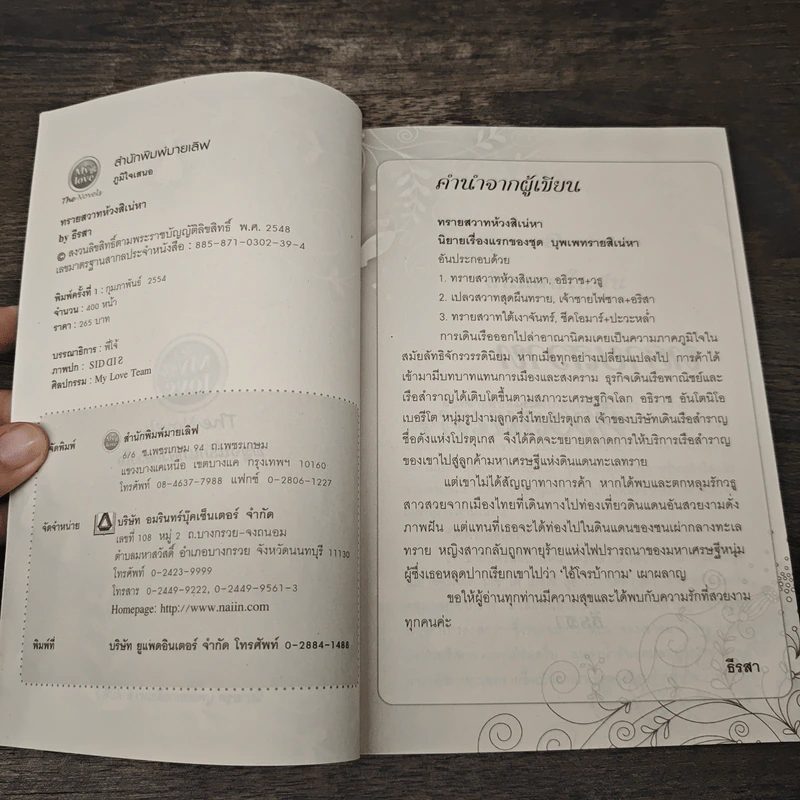 My love
The Novels
สำนักพิมพ์มายเลิฟ
ภูมิใจเสนอ
ทรายสวาทห้วงสิเน่หา
by ธีรสา
© สงวนลิขสิทธิ์ตามพระราชบัญญัติลิขสิทธิ์ พ.ศ. 2548
เลขมาตรฐานสากลประจำหนังสือ : 885-871-0302-39-4
พิมพ์ครั้งที่ 1 : กุมภาพันธ์ 2554
จำนวน : 400 หน้า
ราคา : 265 บาท
บรรณาธิการ : พี่โจ้
ภาพปก :
ศิลปกรรม : My Love Team
จัดพิมพ์
สำนักพิมพ์มายเลิฟ
6/6 ซ.เพชรเกษม 94 ถ.เพชรเกษม
แขวงบางแคเหนือ เขตบางแค กรุงเทพฯ 10160
โทรศัพท์ 08-4637-7988 แฟกซ์ 0-2806-1227
จัดจำหน่าย
บริษัท อมรินทร์บุ๊คเซ็นเตอร์ จำกัด
เลขที่ 108 หมู่ 2 ถ.บางกรวย-จงถนอม
ตำบลมหาสวัสดิ์ อำเภอบางกรวย จังหวัดนนทบุรี 11130
โทรศัพท์ 0-2423-9999
โทรสาร 0-2449-9222, 0-2449-9561-3
Homepage: http://www.naiin.com
พิมพ์ที่ บริษัท ยูแพดอินเตอร์ จำกัด โทรศัพท์ 0-2884-1488
คำนำจากผู้เขียน
ทรายสวาทห้วงสิเน่หา
นิยายเรื่องแรกของชุด บุพเพทรายสิเน่หา
อันประกอบด้วย
1. ทรายสวาทห้วงสิเนหา, อธิราช+วธู
2. เปลวสวาทสุดผืนทราย, เจ้าชายไฟซาล+อริสา
3. ทรายสวาทใต้เงาจันทร์, ชีคโอมาร์+ปะวะหล่ำ
การเดินเรือออกไปล่าอาณานิคมเคยเป็นความภาคภูมิใจใน
สมัยลัทธิจักรวรรดินิยม หากเมื่อทุกอย่างเปลี่ยนแปลงไป การค้าได้
เข้ามามีบทบาทแทนการเมืองและสงคราม ธุรกิจเดินเรือพาณิชย์และ
เรือสำราญได้เติบโตขึ้นตามสภาวะเศรษฐกิจโลก อธิราช อันโตนิโอ
เบอรีโต หนุ่มรูปงามลูกครึ่งไทยโปรตุเกส เจ้าของบริษัทเดินเรือสำราญ
ชื่อดังแห่งโปรตุเกส จึงได้คิดจะขยายตลาดการให้บริการเรือสำราญ
ของเขาไปสู่ลูกค้ามหาเศรษฐีแห่งดินแดนทะเลทราย
แต่เขาไม่ได้สัญญาทางการค้า หากได้พบและตกหลุมรักวธู
สาวสวยจากเมืองไทยที่เดินทางไปท่องเที่ยวดินแดนอันสวยงามดั่ง
ภาพฝัน แต่แทนที่เธอจะได้ท่องไปในดินแดนของชนเผ่ากลางทะเล
ทราย หญิงสาวกลับถูกพายุร้ายแห่งไฟปรารถนาของมหาเศรษฐีหนุ่ม
ผู้ซึ่งเธอหลุดปากเรียกเขาไปว่า 'ไอ้โจรบ้ากาม' เผาผลาญ
ขอให้ผู้อ่านทุกท่านมีความสุขและได้พบกับความรักที่สวยงาม
ทุกคนค่ะ
ธีรสา